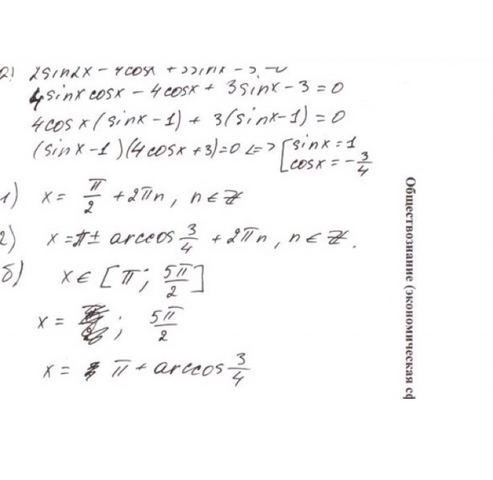 a) 2sin2x - 4cosx + 3sinx - 3 = 0
4sinxcosx - 4cosx + 3sinx - 3 = 0
4cosx(sinx - 1) + 3(sinx - 1) = 0
(sinx - 1)(4cosx + 3) = 0 <=> [ sinx = 1
cosx = -3/4
1) x = π/2 + 2πn, n ∈ Z
2) x = π ± arccos 3/4 + 2πn, n ∈ Z.
б) x ∈ [π; 5π/2]
x = ; 5π/2
x = π + arccos 3/4
Обществознание (экономическая сф